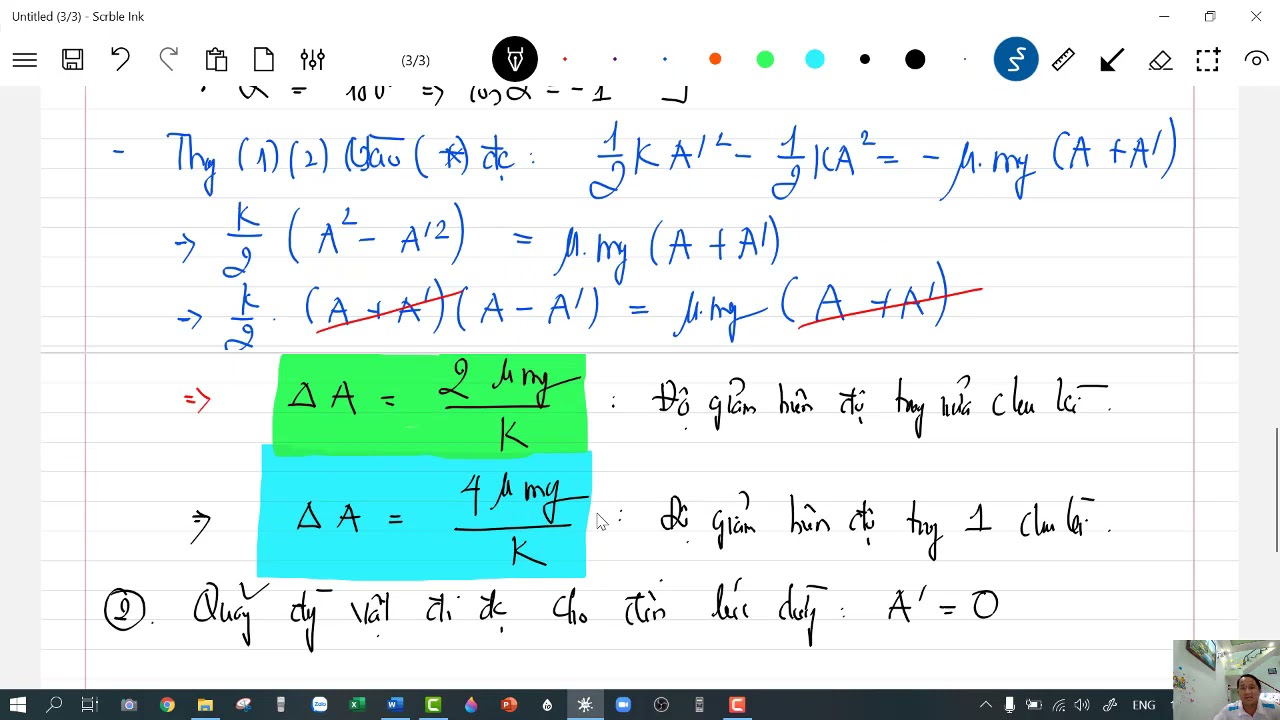 Untitled (3/3) - Scrble Ink
(3/3)
α = 180° => cosα = -1
- Thay (1)(2) vào (*) đc: 1/2 K A'² - 1/2 KA² = - μ.mg (A + A')
→ k/2 (A² - A'²) = μ.mg (A + A')
→ k/2 . (A + A')(A - A') = μ.mg (A + A')
=> ΔA = 2 μmg / K : Độ giảm biên độ trong nửa chu kì.
=> ΔA = 4 μmg / K : độ giảm biên độ trong 1 chu kì.
②. Quãng đg vật đi đc cho đến lúc dừng: A' = 0
ENG